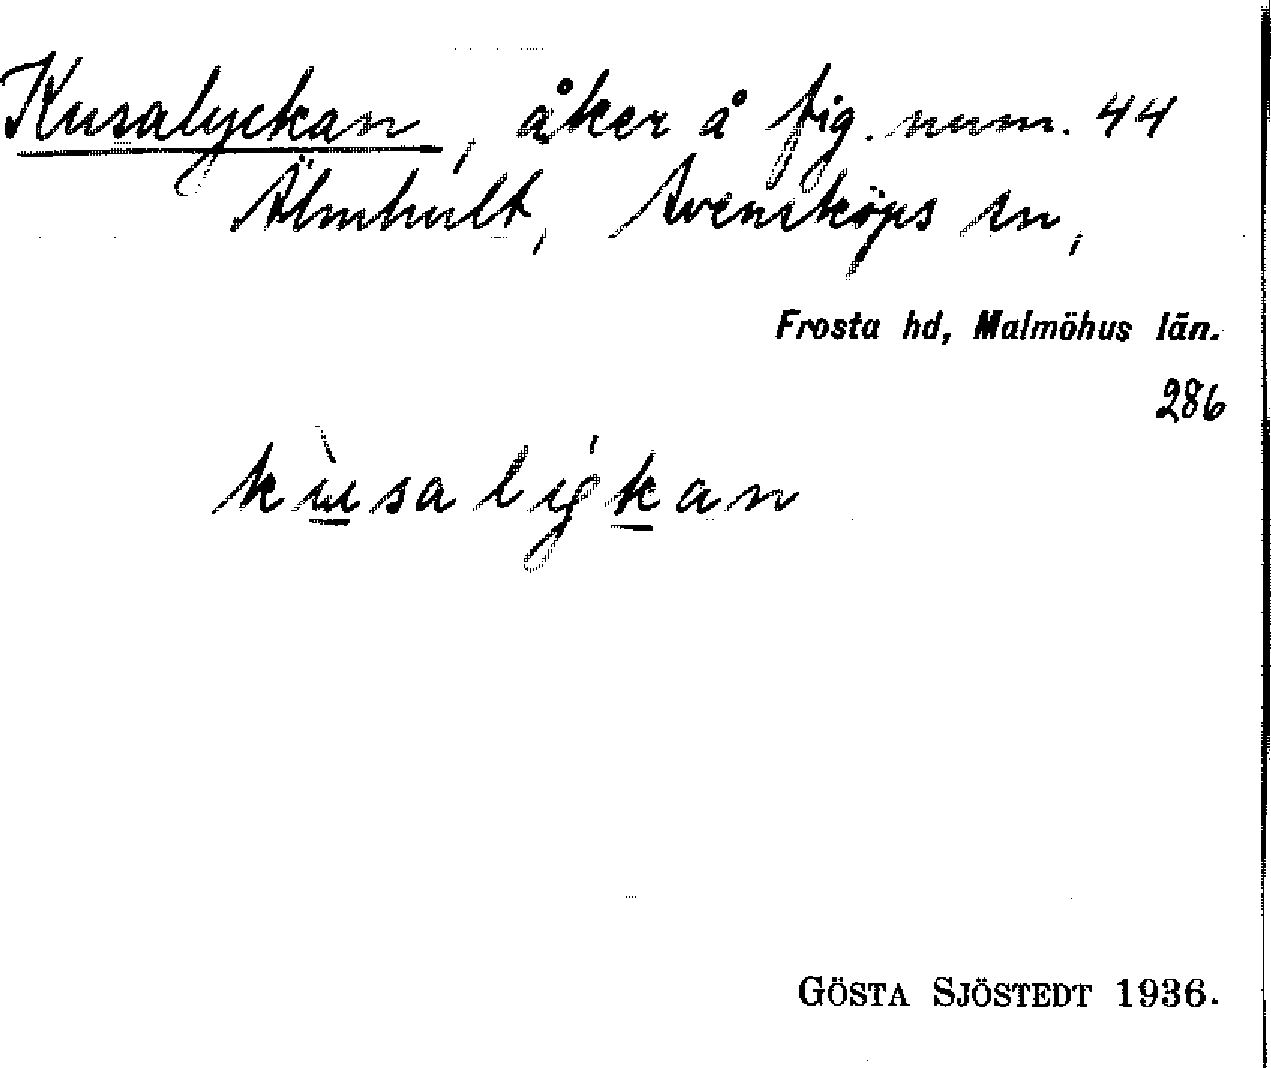 Kusalyckan, åker å fig. num. 44
Älmhult, Svensköps sn,
Frosta hd, Malmöhus län.
286
kùsalýkan
GÖSTA SJÖSTEDT 1936.